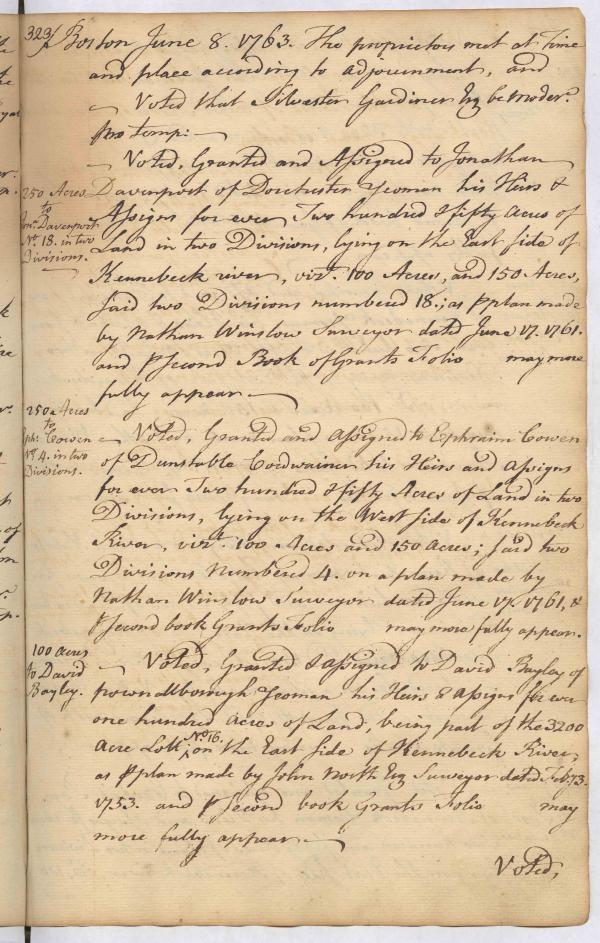 323/ Boston June 8. 1763. The proprietors met at Time
and place according to adjournment, and
Voted that Silvester Gardiner Esq be Moder.r
pro temp:
Voted, Granted and Assigned to Jonathan
250 Acres
to
Jon.a Davenport
No. 18. in two
Divisions.
Davenport of Dorchester Yeoman his Heirs &
Assigns for ever Two hundred & fifty acres of
Land in two Divisions, lying on the East side of
Kennebeck river, vizt. 100 Acres, and 150 Acres,
said two Divisions numbered 18.; as p plan made
by Nathan Winslow Surveyor dated June 17. 1761.
and p Second Book of Grants Folio may more
fully appear
250 Acres
to
Eph: Cowen
No. 4. in two
Divisions.
Voted, Granted and assigned to Ephraim Cowen
of Dunstable Cordwainer his Heirs and assigns
for ever Two hundred & fifty Acres of Land in two
Divisions, lying on the West side of Kennebeck
River, vizt. 100 Acres and 150 acres; said two
Divisions Numbered 4. on a plan made by
Nathan Winslow Surveyor dated June 17. 1761, &
p Second book Grants Folio may more fully appear.
100 acres
to David
Bayley.
Voted, Granted & assigned to David Bayley of
pownalborough Yeoman his Heirs & assigns for ever
one hundred acres of Land, being part of the 3200
acre Lott No. 16. on the East side of Kennebeck River,
as p plan made by John North Esq Surveyor dated Feb.
1753. and p Second book Grants Folio may
more fully appear
Voted,